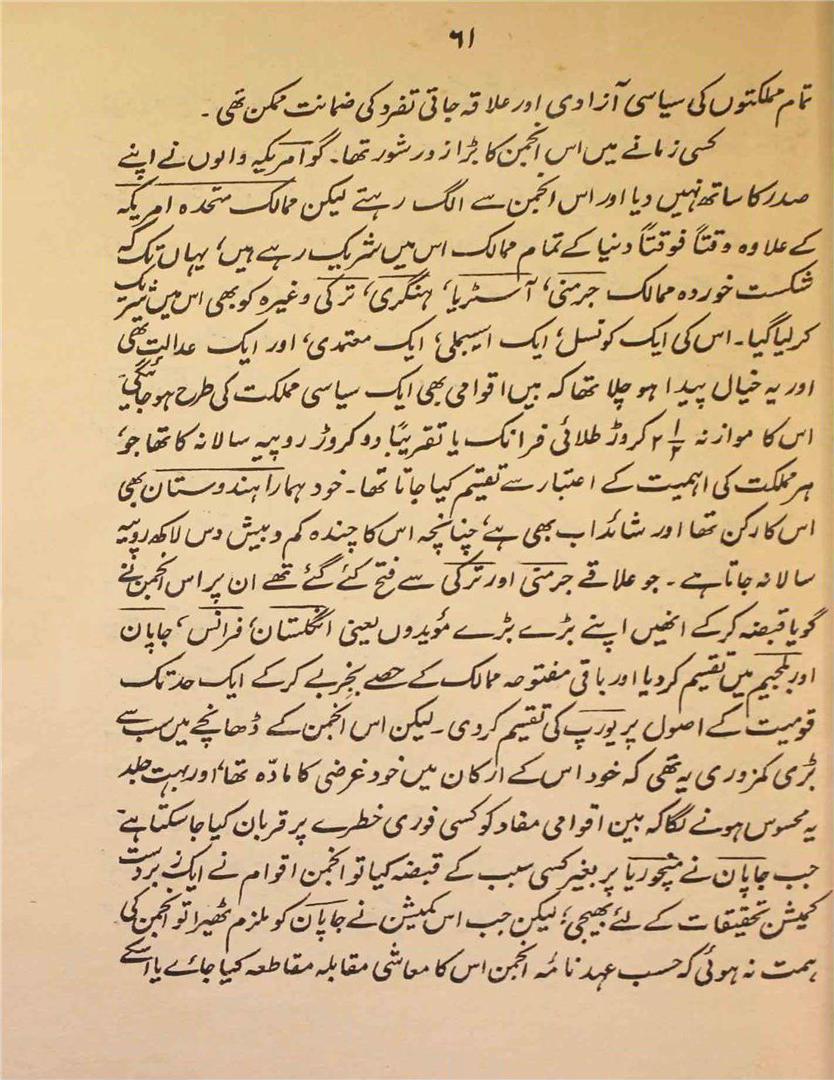 ٦١
تمام مملکتوں کی سیاسی آزادی اور علاقہ جاتی تفرد کی ضمانت ممکن تھی ۔
کسی زمانے میں اس انجمن کا بڑا زور شور تھا۔ گو امریکہ والوں نے اپنے
صدر کا ساتھ نہیں دیا اور اس انجمن سے الگ رہتے لیکن ممالک متحدہ امریکہ
کے علاوہ وقتاً فوقتاً دنیا کے تمام ممالک اس میں شریک رہے ہیں، یہاں تک کہ
شکست خوردہ ممالک جرمنی، آسٹریا، ہنگری، ترکی وغیرہ کو بھی اس میں شریک
کر لیا گیا۔ اس کی ایک کونسل، ایک اسیمبلی، ایک معتمدی، اور ایک عدالت تھی
اور یہ خیال پیدا ہو چلا تھا کہ بین اقوامی بھی ایک سیاسی مملکت کی طرح ہو جائیگی۔
اس کا موازنہ ۲½ کروڑ طلائی فرانک یا تقریبًا دو کروڑ روپیہ سالانہ کا تھا جو،
ہر مملکت کی اہمیت کے اعتبار سے تقیتم کیا جاتا تھا۔ خود ہمارا ہندوستان بھی
اس کا رکن تھا اور شائد اب بھی ہے، چنانچہ اس کا چندہ کم و بیش دس لاکھ روپیہ
سالانہ جاتا ہے ۔ جو علاقے جرمنی اور ترکی سے فتح کئے گئے تھے ان پر اس انجمن نے
گویا قبضہ کر کے انھیں اپنے بڑے بڑے مؤیدوں یعنی انگلستان، فرانس، جاپان
اور بلجیم میں تقسیم کر دیا اور باقی مفتوحہ ممالک کے حصے بخرے کر کے ایک حد تک
قومیت کے اصول پر یورپ کی تقسیم کر دی ۔ لیکن اس انجمن کے ڈھانچے میں سب سے
بڑی کمزوری یہ تھی کہ خود اس کے ارکان میں خود غرضی کا مادّہ تھا، اور بہت جلد
یہ محسوس ہونے لگا کہ بین اقوامی مفاد کو کسی فوری خطرے پر قربان کیا جا سکتا ہے
جب جاپان نے منچوریا پر بغیر کسی سبب کے قبضہ کیا تو انجمن اقوام نے ایک زبردست
کمیشن تحقیقات کے لئے بھیجی؛ لیکن جب اس کمیشن نے جاپان کو ملزم ٹھیرا تو انجمن کی
ہمت نہ ہوئی کہ حسب عہد نامہ انجمن اس کا معاشی مقابلہ مقاطعہ کیا جائے یا اسکے